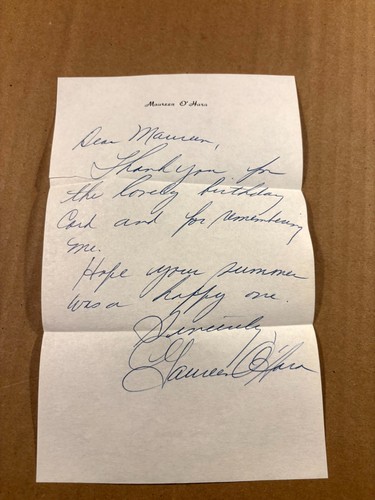 Maureen O'Hara
Dear Maureen,
Thank you for
the lovely birthday
Card and for remembering
me.
Hope your summer
was a happy one.
Sincerely
Maureen O'Hara